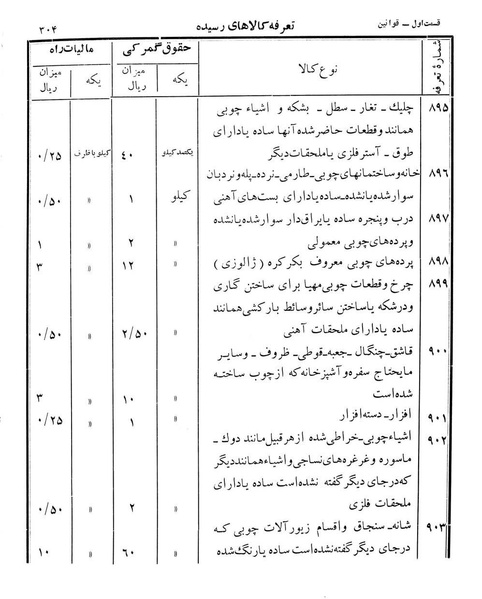 قسمت اول ـ قوانین تعرفه کالاهای رسیده ۳۰۴
شمارهٔ تعرفه نوع کالا حقوق گمرکی مالیات راه
یکه میزان ریال یکه میزان ریال
۸۹۵ چلیك ـ تغار ـ سطل ـ بشکه و اشیاء چوبی
همانند وقطعات حاضر شده آنها ساده یا دارای
طوق ـ آستر فلزی یا ملحقات دیگر یکصد کیلو ۴۰ کیلو با ظرف ۰/۲۵
۸۹۶ خانه وساختمانهای چوبی ـ طارمی ـ نرده ـ پله ونردبان
سوار شده یا نشده ـ ساده یا دارای بست های آهنی کیلو ۱ » ۰/۵۰
۸۹۷ درب و پنجره ساده یا یراق دار سوار شده یا نشده
و پرده های چوبی معمولی » ۲ » ۱
۸۹۸ پرده های چوبی معروف بکرکره ( ژالوزی ) » ۱۲ » ۳
۸۹۹ چرخ و قطعات چوبی مهیا برای ساختن گاری
ودرشکه یا ساختن سائر وسائط بارکشی همانند
ساده یا دارای ملحقات آهنی » ۲/۵۰ » ۰/۵۰
۹۰۰ قاشق ـ چنگال ـ جعبه ـ قوطی ـ ظروف ـ وسایر
مایحتاج سفره و آشپزخانه که از چوب ساخته
شده است » ۱۰ » ۳
۹۰۱ افزار ـ دسته افزار » ۱ » ۰/۲۵
۹۰۲ اشیاء چوبی ـ خراطی شده از هر قبیل مانند دوك ـ
ماسوره و غرغره های نساجی و اشیاء همانند دیگر
که درجای دیگر گفته نشده است ساده یا دارای
ملحقات فلزی » ۲ » ۰/۵۰
۹۰۳ شانه ـ سنجاق و اقسام زیور آلات چوبی که
درجای دیگر گفته نشده است ساده یا رنگ شده » ۶۰ » ۱۰